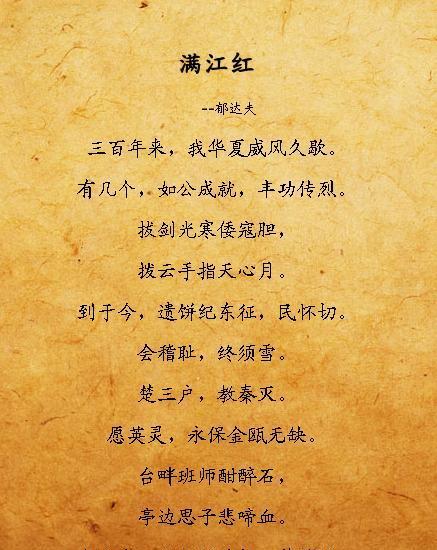 满江红
--郁达夫
三百年来，我华夏威风久歇。
有几个，如公成就，丰功传烈。
拔剑光寒倭寇胆，
拨云手指天心月。
到于今，遗饼纪东征，民怀切。
会稽耻，终须雪。
楚三户，教秦灭。
愿英灵，永保金瓯无缺。
台畔班师酣醉石，
亭边思子悲啼血。